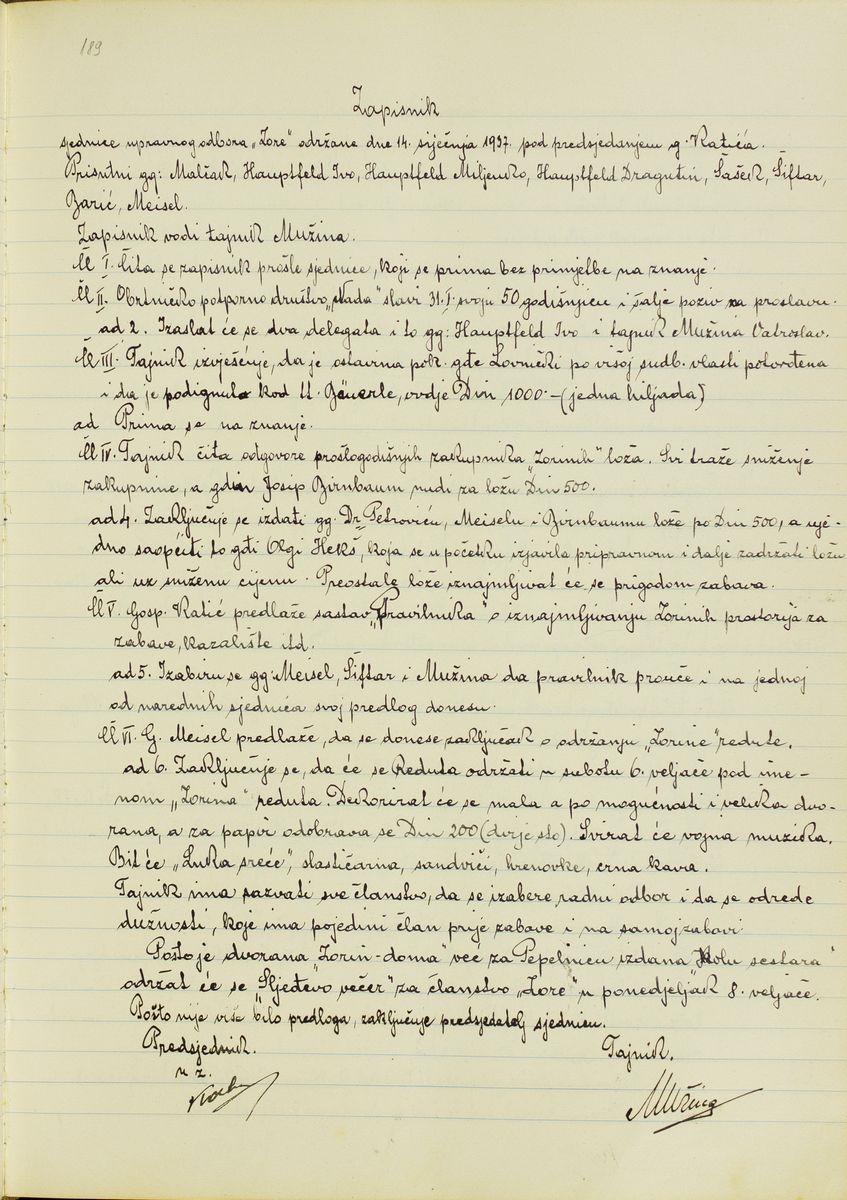 189
Zapisnik
sjednice upravnog odbora „Zore“ održane dne 14. siječnja 1937. pod predsjedanjem g. Katića.
Prisutni gg: Malčak, Hauptfeld Ivo, Hauptfeld Miljenko, Hauptfeld Dragutin, Šašek, Šiftar,
Barić, Meisel.
Zapisnik vodi tajnik Mužina.
Čl I. Čita se zapisnik prošle sjednice, koji se prima bez primjetbe na znanje.
Čl II. Obrtničko potporno društvo „Nada“ slavi 31.I. svoju 50 godišnjicu i šalje poziv za proslavu.
ad 2. Izaslat će se dva delegata i to gg: Hauptfeld Ivo i tajnik Mužina Vatroslav.
Čl III. Tajnik izvješćuje, da je ostavina pok. gđe Lovnički po višoj sudb. vlasti potvrđena
i da je podignuta kod Bäuerle, ovdje Din 1000.- (jedna hiljada)
ad Prima se na znanje.
Čl IV. Tajnik čita odgovore prošlogodišnjih zakupnika „Zorinih“ loža. Svi traže sniženje
zakupnine, a gdin Josip Birnbaum nudi za ložu Din 500.
ad 4. Zaključuje se izdati gg. Dr Petroviću, Meiselu i Birnbaumu lože po Din 500, a uje-
dno saopćiti to gđi Olgi Hekš, koja se u početku izjavila pripravnom i dalje zadržati ložu
ali uz sniženu cijenu. Preostale lože iznajmljivat će se prigodom zabava.
Čl V. Gosp. Katić predlaže sastav „Pravilnika“ o iznajmljivanju Zorinih prostorija za
zabave, kazalište itd.
ad 5. Izabiru se gg: Meisel, Šiftar i Mužina da pravilnik prouče i na jednoj
od narednih sjednica svoj predlog donesu.
Čl VI. G. Meisel predlaže, da se donese zaključak o održanju „Zorine“ redute.
ad 6. Zaključuje se, da će se Reduta održati u subotu 6. veljače pod ime-
nom „Zorina“ reduta. Dekorirat će se mala a po mogućnosti i velika dvo-
rana, a za papir odobrava se Din 200 (dvije sto). Svirat će vojna muzika.
Bit će „Luka sreće“, slastičarna, sandviči, hrenovke, crna kava.
Tajnik ima sazvati sve članstvo, da se izabere radni odbor i da se odrede
dužnosti, koje ima pojedini član prije zabave i na samoj zabavi
Pošto je dvorana „Zorin-doma“ već za Pepelnicu izdana „Kolu sestara“
održat će se „Sljeđevo večer“ za članstvo „Zore“ u ponedjeljak 8. veljače.
Pošto nije više bilo predloga, zaključuje predsjedatelj sjednicu.
Predsjednik. Tajnik.
u z.
Mužina